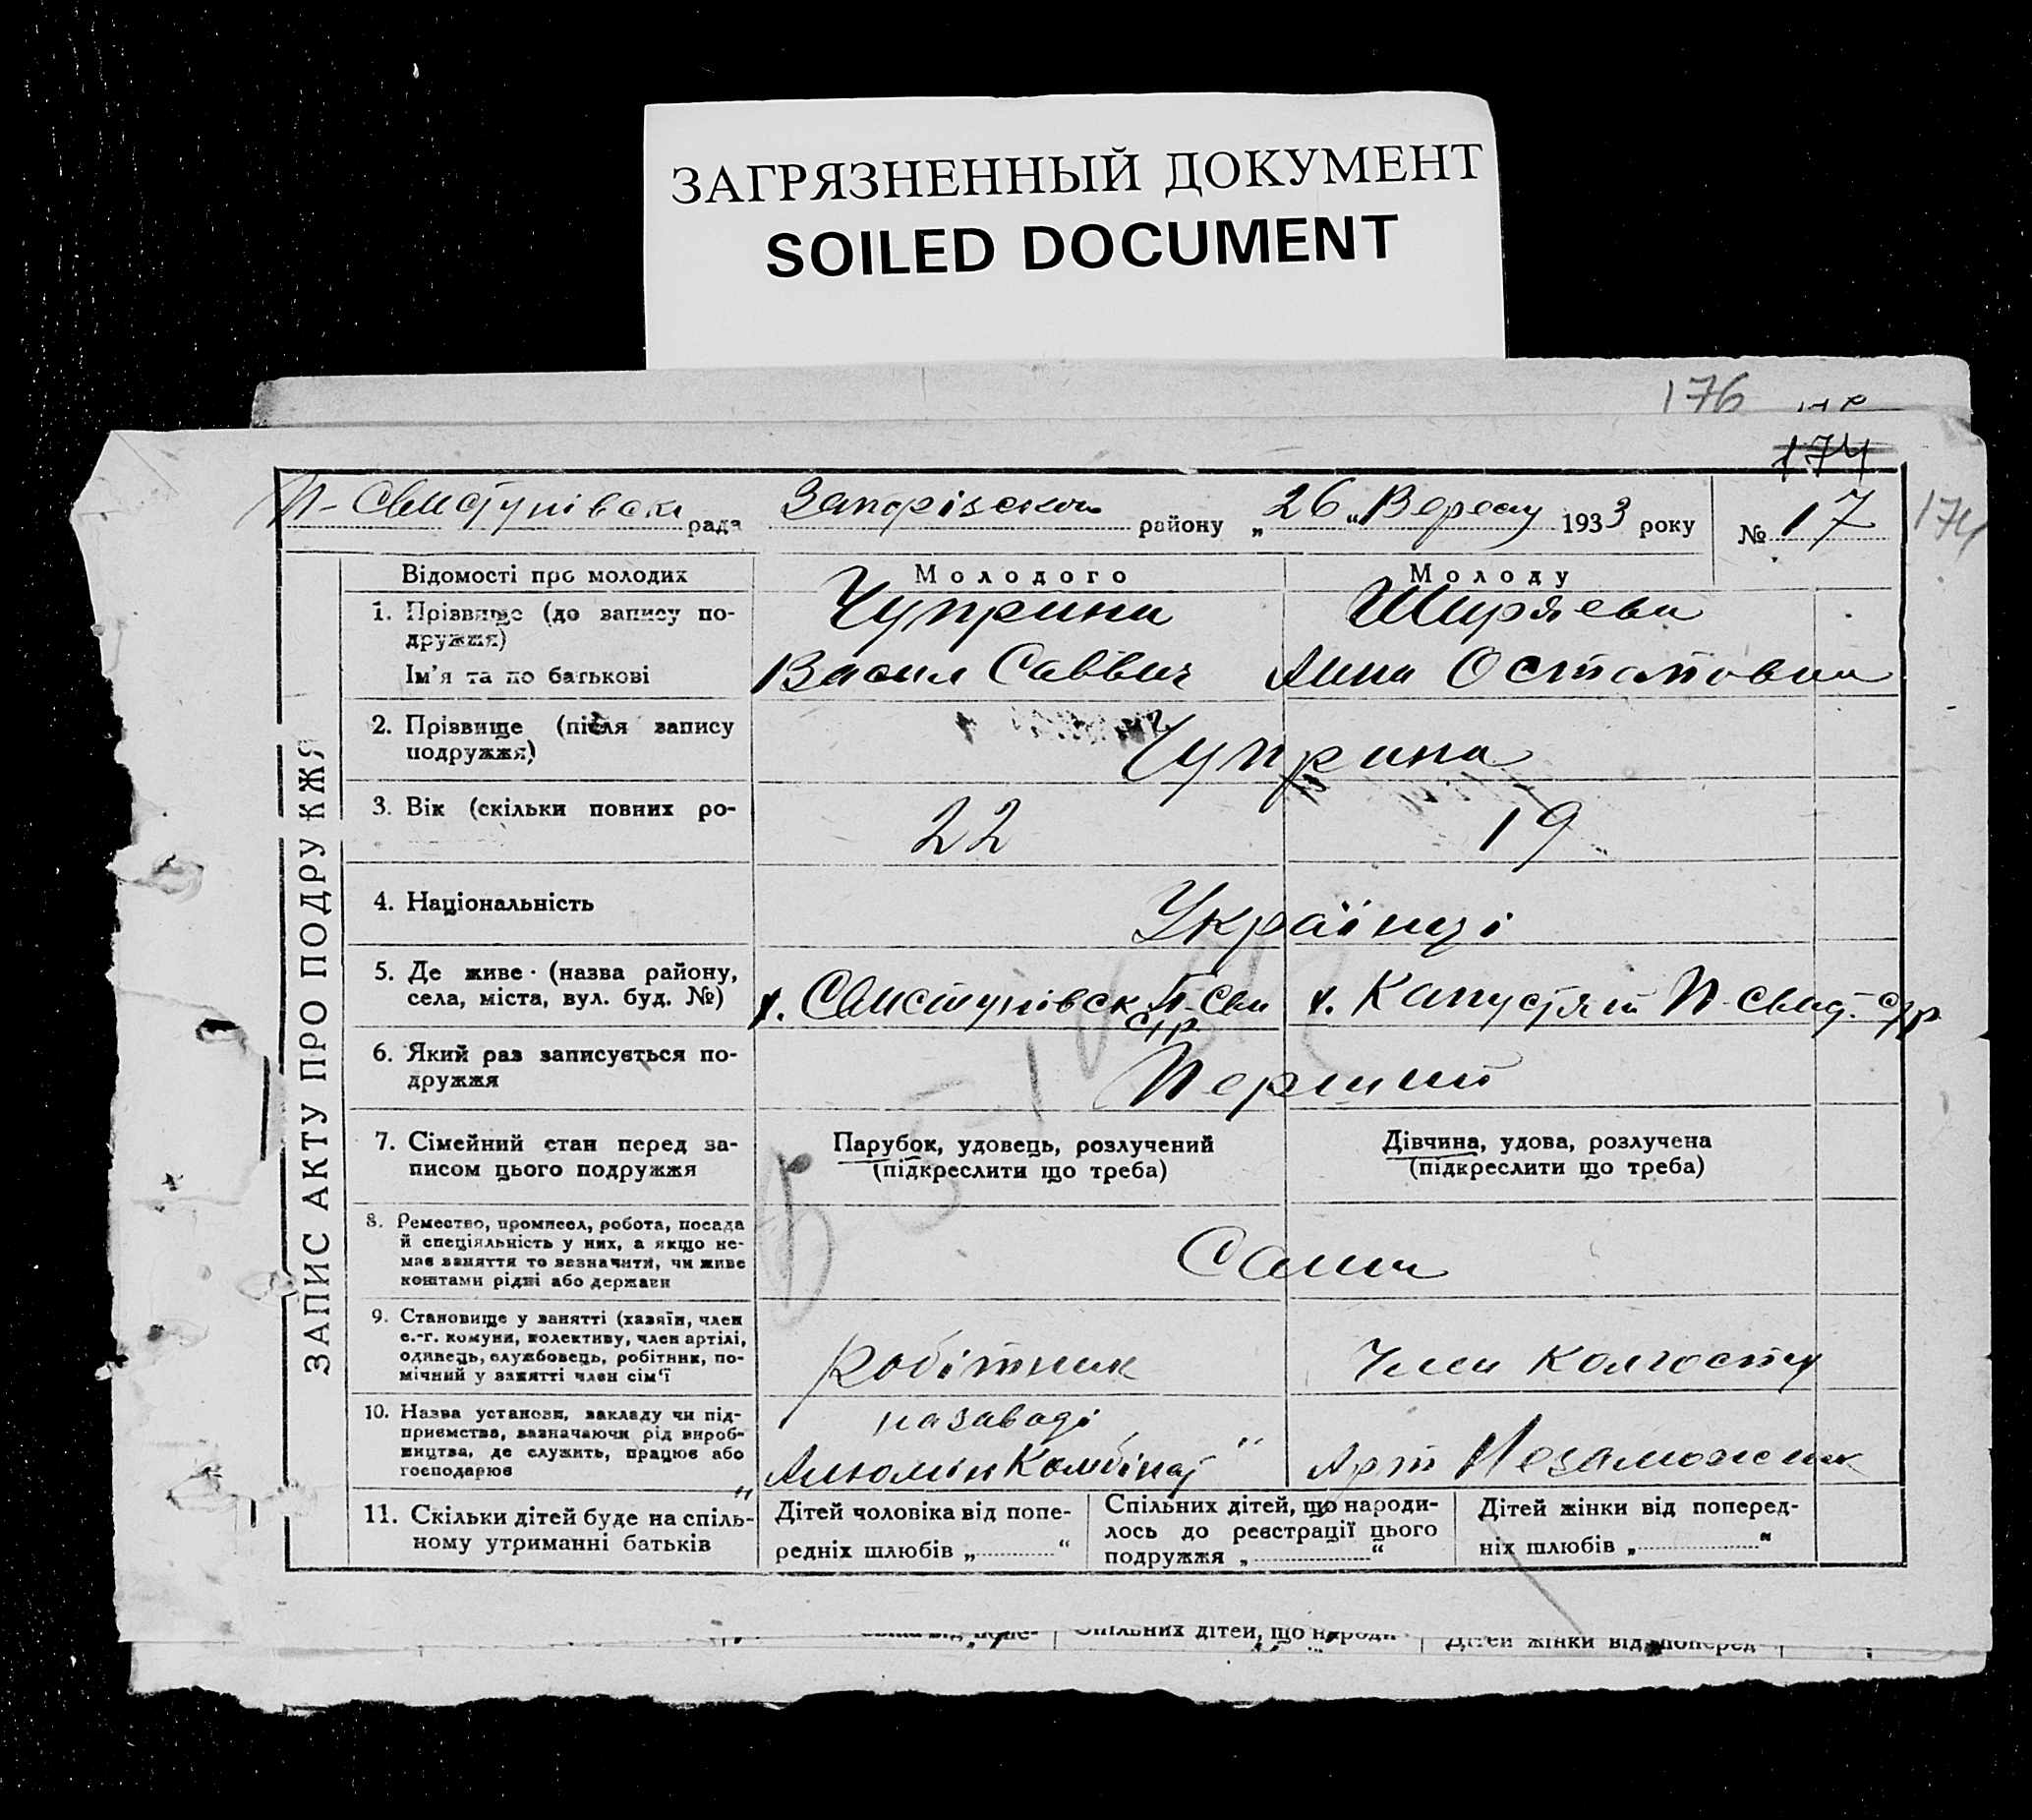 ЗАГРЯЗНЕННЫЙ ДОКУМЕНТ
SOILED DOCUMENT
176
174
П-Свистунівска рада Запорізского району „26“ Вересн 1933 року № 17
174
ЗАПИС АКТУ ПРО ПОДРУЖЖЯ
Відомості про молодих
Молодого
Молоду
1. Прізвище (до запису по-
дружжя)
Чуприна
Ширяева
Ім'я та по батькові
Васил Саввич
Анна Остаповна
2. Прізвище (після запису
подружжя)
Чуприна
3. Вік (скільки повних ро-
22
19
4. Національність
Українці
5. Де живе (назва району,
села, міста, вул. буд. №)
х. Свистунівск П-Сви
с/р
х. Капустян П-Свист. с/р
6. Який раз записується по-
дружжя
Перший
7. Сімейний стан перед за-
писом цього подружжя
Парубок, удовець, розлучений
(підкреслити що треба)
Дівчина, удова, розлучена
(підкреслити що треба)
8. Ремество, промисел, робота, посада
й спеціяльність у них, а якщо не-
має заняття то зазначити, чи живе
коштами рідні або держави
Сами
9. Становище у занятті (хазяїн, член
с.-г. комуни, колективу, член артілі,
одинець, службовець, робітник, по-
мічний у занятті член сім'ї
Робітник
Член Колгоспу
10. Назва установи, закладу чи під-
приємства, зазначаючи рід вироб-
ництва, де служить, працює або
господарює
на заводі
„Алюмін Комбінат“
Арт Незаможник
11. Скільки дітей буде на спіль-
ному утриманні батьків
Дітей чоловіка від попе-
редніх шлюбів „............“
Спільних дітей, що народи-
лось до реєстрації цього
подружжя „............“
Дітей жінки від поперед-
ніх шлюбів „............“
Спільних дітей, що народи-
Дітей жінки від поперед-